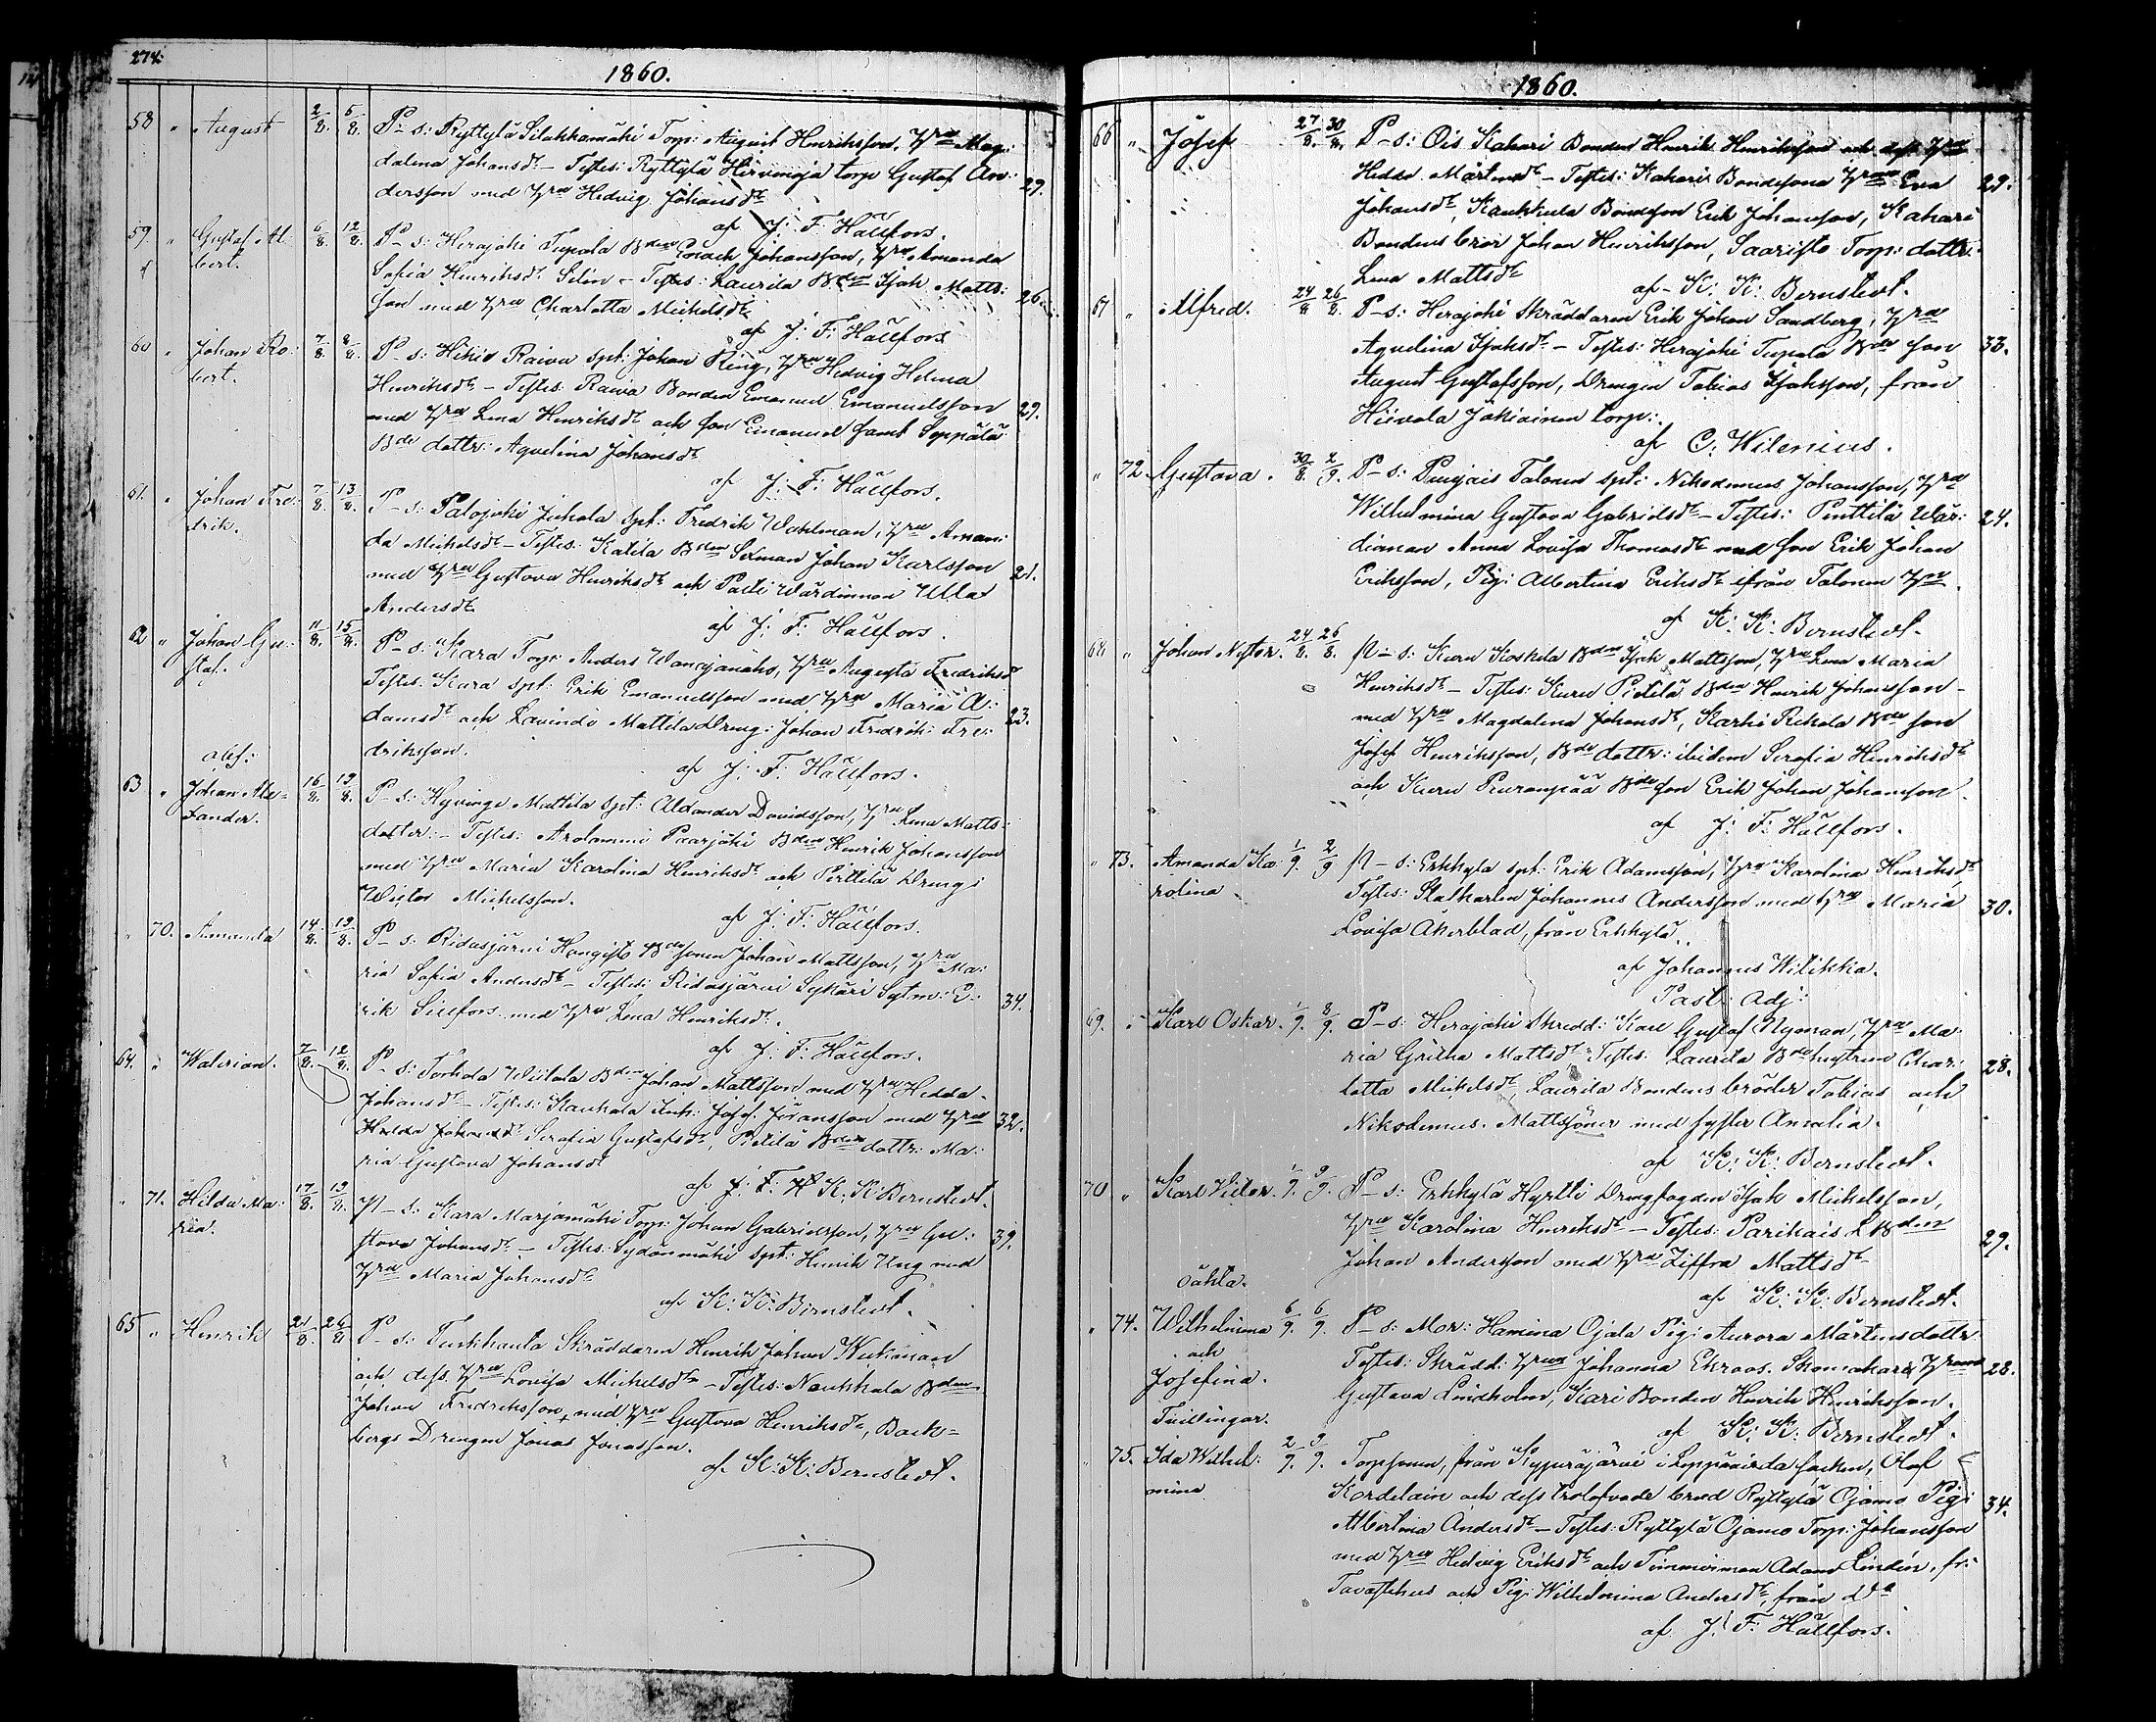 274.
1860.
58 " August 2/8. 5/8. P-s: Ryttylä Silakkamäki Torp: August Henriksson, Hru Mag:
dalena Johansdr – Testes: Ryttylä Hirvinoja torp Gustaf An: 29.
dersson med Hru Hedvig Johansdr
af J: F: Hällfors.
59. " Gustaf Al: 6/8. 12/8. P-s: Herajoki Tupala Bden Enoch Johansson, Hru Amanda
bert. Sofia Henriksdr Selin – Testes: Laurila Bden Isak Matts: 26.
son med Hru Charlotta Mickelsdr
af J: F: Hällfors
60 " Johan Ro: 7/8. 8/8. P-s: Hikiä Raiva spt: Johan Ring, Hru Hedvig Helena
bert. Henriksdr – Testes: Raiva Bonden Emanuel Emanuelsson 29.
med Hru Lena Henriksdr och son Emanuel samt Seppälä
Bde dottr: Aqvelina Johansdr
af J: F: Hällfors.
61. " Johan Fre: 7/8. 13/8. P-s: Palojoki Juhola spt: Fredrik Wahlman, Hru Aman:
drik. da Mickelsdr – Testes: Katila Bden Sexman Johan Karlsson 21.
med Hru Gustava Henriksdr och Palti Wärdinnan Ulla
Andersdr
af J: F: Hällfors.
62 " Johan Gu: 11/8. 15/8. P-s: Kara Torp: Anders Wanajanaho, Hru Augusta Fredriksdr
staf. Testes: Kara spt: Erik Emanuelsson med Hru Maria A:
damsdr och Lavindo Mattila Dreng: Johan Fredrik: Fre: 23.
driksson.
af J: F: Hällfors.
63 " Johan Ale= 16/8. 19/8. P-s: Hyvinge Mattila spt: Alexander Davidsson, Hru Lena Matts:
xander. dotter: – Testes: Arolammi Paarjoki Bden Henrik Johansson
med Hru Maria Karolina Henriksdr och Pirttilä Dreng:
Victor Mickelsson.
af J: F: Hällfors.
" 70. Amanda 14/8. 19/8. P-s: Ridasjärvi Hongisto Bdesonen Johan Mattsson, Hru Ma:
ria Sofia Andersdr – Testes: Ridasjärvi Sykäri Sytm: E: 34.
rik Sillfors med Hru Lena Henriksdr.
af J: F: Hällfors.
64. " Walerian. 7/8. 12/8. P-s: Torhola Wiitala Bden Johan Mattsson med Hru Hedda
Johansdr – Testes: Kaukola Josef Johansson med Hru 32.
Hedda Johansdr Serafia Gustafsdr, Pietilä Bden dottr: Ma:
ria Gustava Johansdr
af K. K: Bernstedt.
" 71. Hilda Ma: 17/8. 19/8. P-s: Kara Marjamäki Torp: Johan Gabrielsson, Hru Gu: 39.
ria. stava Johansdr – Testes: Sydänmäki spt: Henrik Ung med
Hru Maria Johansdr
af K: K: Bernstedt.
65 " Henrik 21/8. 26/8. P-s: Turkhauta Skräddaren Henrik Johan Wickman
och dess Hru Lovisa Mickelsdr – Testes: Naukkala Bden
Johan Fredriksson med Hru Gustava Henriksdr, Back=
bergs Drengen Jonas Jonasson.
af K: K: Bernstedt.
1860.
66 " Josef 27/8. 30/8. P-s: Ois Kahari Bonden Henrik Henriksson och dess Hru
Hedda Mårtensdr – Testes: Kahari Bondesona Hrun Eva 29.
Johansdr, Kaukkula Bondeson Erik Johansson, Kahari
Bondens bror Johan Henriksson, Saaristo Torp: dottr:
Lena Mattsdr
af K: K: Bernstedt.
67 " Alfred. 24/8 26/8. P-s: Herajoki Skräddaren Erik Johan Sandberg, Hru
Aqvelina Isaksdr – Testes: Herajoki Tupala Bde son 33.
August Gustafsson, Drengen Tobias Isaksson, från
Hiivola Jokivinen torp:.
af C: Wilenius.
" 72. Gustava. 30/8. 2/9. P-s: Punjais Talonen spt: Nikodemus Johansson, Hru
Wilhelmina Gustava Gabrielsdr – Testes: Penttilä Wär: 24.
dinnan Anna Lovisa Thomasdr med son Erik Johan
Eriksson, Pig: Albertina Eriksdr ifrån Talonen
af K: K: Bernstedt.
68 " Johan Nestor. 24/8. 26/8. P-s: Kuru Koskela Bden Isak Mattsson, Hru Lena Maria
Henriksdr – Testes: Kuru Pietilä Bden Henrik Johansson –
med Hru Magdalena Johansdr, Karhi Rekola Bde son
Josef Henriksson, Bde dottr: ibidem Serafia Henriksdr
och Kuru Puranpää Bde son Erik Johan Johansson.
af J: F: Hällfors.
" 73. Amanda Ka: 1/9. 2/9 P-s: Erkkylä spt: Erik Adamsson, Hru Karolina Henriksdr
rolina Testes: Stalkarlen Johannes Andersson med Hru Maria 30.
Lovisa Åkerblad, från Erkkylä.
af Johannes Wilikka.
Past: Adj:
69. " Karl Oskar. 1/9. 8/9. P-s: Herajoki Skredd: Karl Gustaf Nyman, Hru Ma:
ria Gretha Mattsdr – Testes: Laurila Bdehustrun Char: 28.
lotta Mickelsdr, Laurila Bondens bröder Tobias och
Nikodemus Mattssöner med syster Amalia.
af K: K: Bernstedt.
70 " Karl Victor. 1/9. 9/9. P-s: Erkkylä Hyrtti Drengfogden Isak Mickelsson,
Hru Karolina Henriksdr – Testes: Parikais LBden 29.
Johan Andersson med Hru Ziffra Mattsdr
af K: K: Bernstedt.
oäkta.
" 74. Wilhelmina 6/9. 6/9. P-s: Mor: Hamina Ojala Pig: Aurora Mårtensdottr.
och Testes: Skrädd: Hrun Johanna Ekroos. Skomakare Hrun 28.
Josefina. Gustava Lindholm, Kari Bonden Henrik Henriksson.
Tvillingar. af K: K: Bernstedt.
" 75. Ida Wilhel: 2/9. 9/9. Torpsonen, från Kypäräjärvi i Loppis socken, Olof
mina Kordelain och dess trolofvade brud Ryttylä Ojamo Pig: 34.
Albertina Andersdr – Testes: Ryttylä Ojamo Torp: Johansson
med Hru Hedvig Eriksdr och Timmerman Adam Lindén, fr:
Tavastehus och Pig: Wilhelmina Andersdr, från do
af J: F: Hällfors.